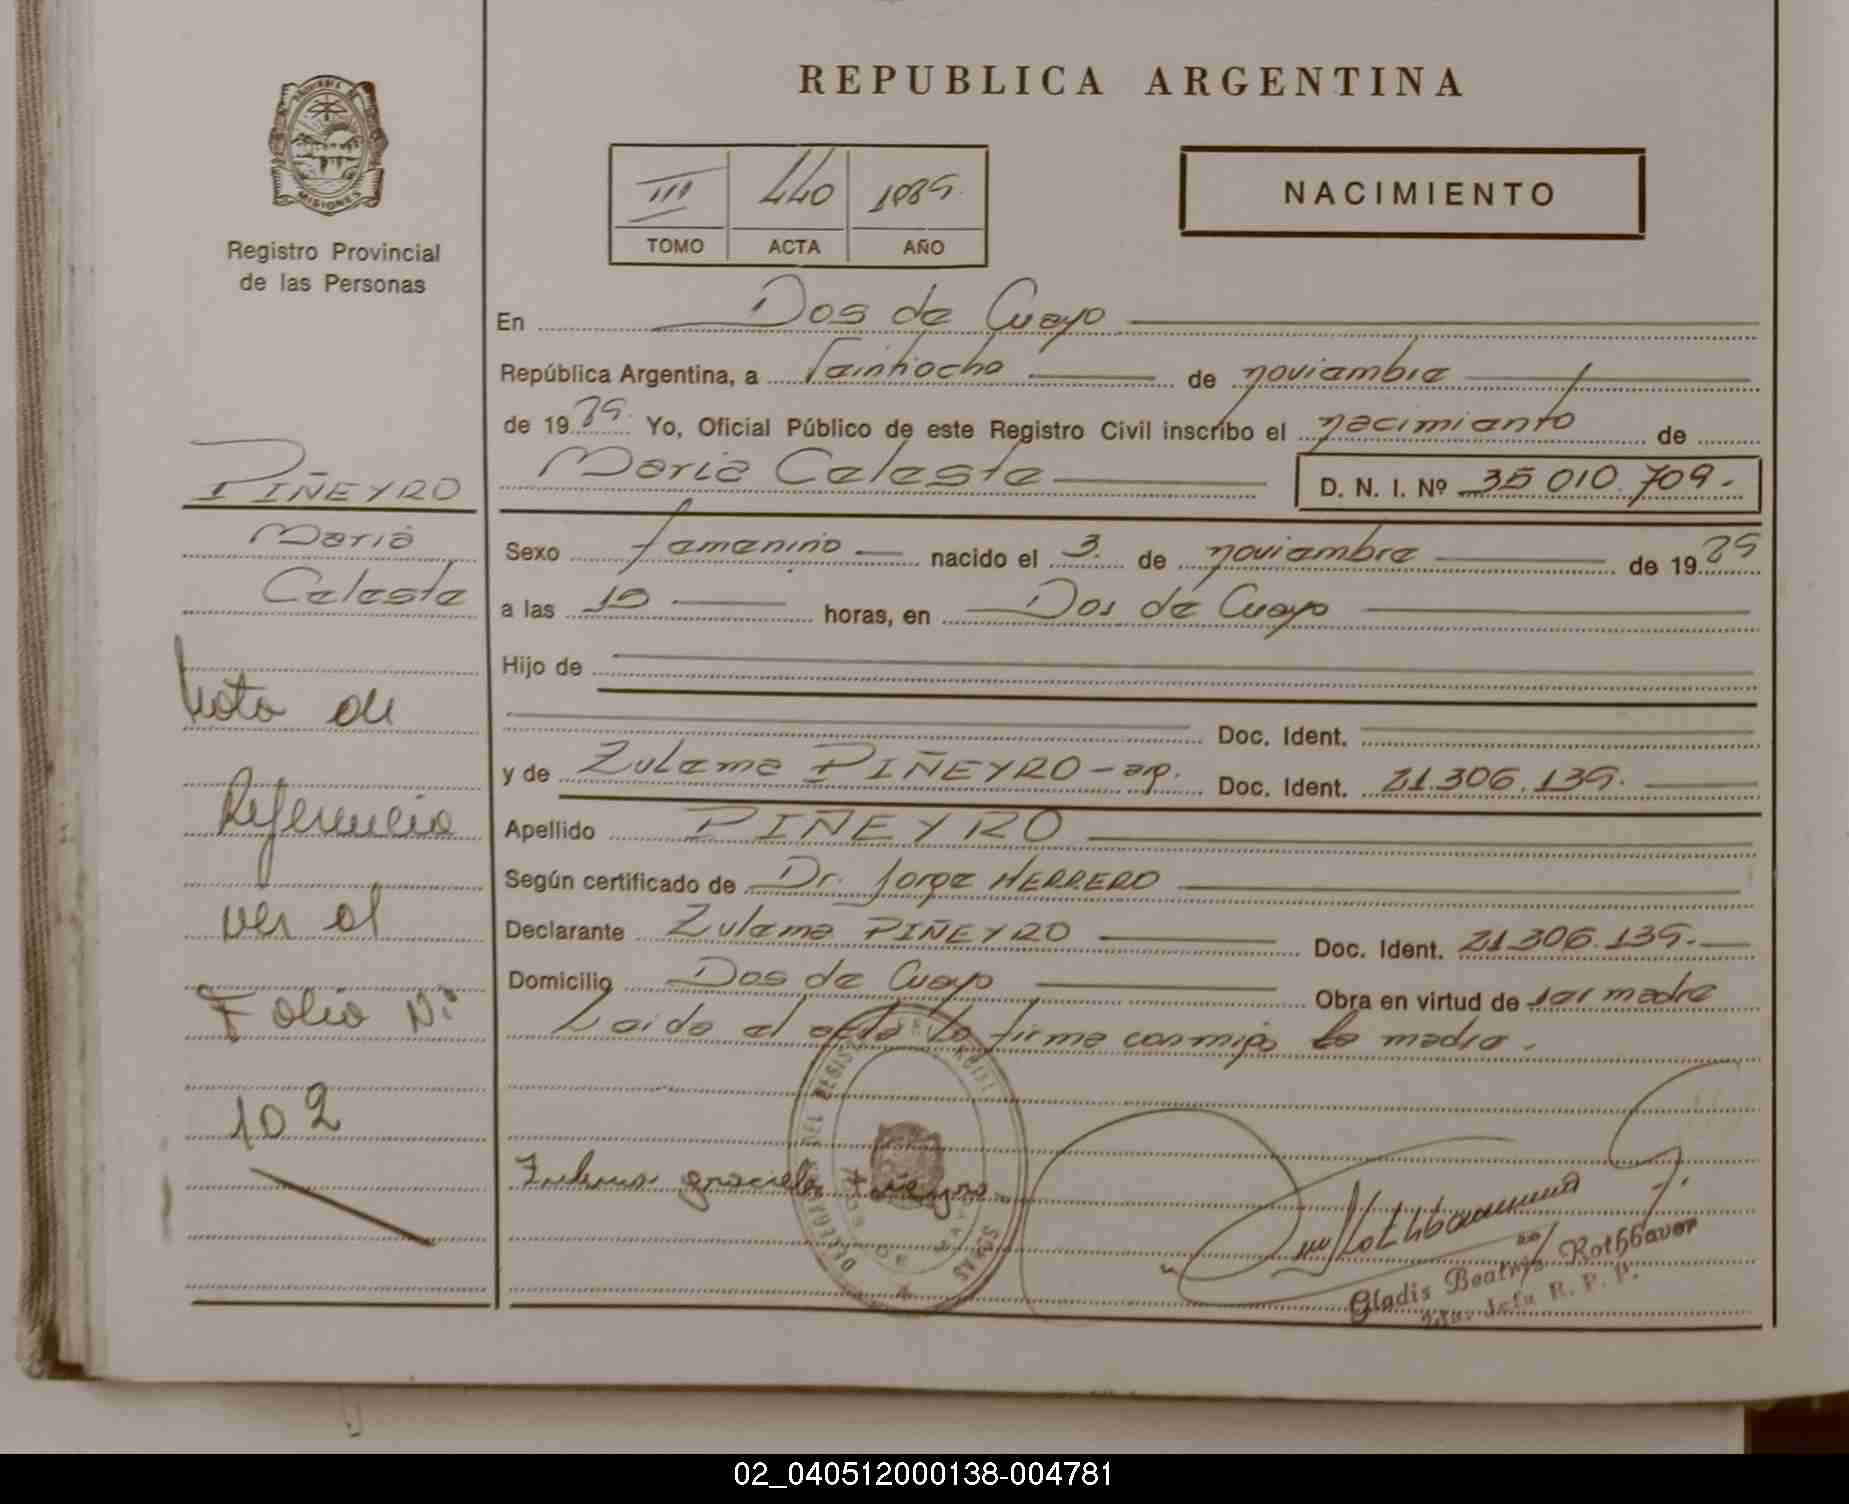 REPUBLICA ARGENTINA
MISIONES
Registro Provincial
de las Personas
III 440 1989.
TOMO ACTA AÑO
NACIMIENTO
En Dos de Mayo
República Argentina, a Veintiocho de noviembre
de 1989. Yo, Oficial Público de este Registro Civil inscribo el nacimiento de
Maria Celeste D. N. I. Nº 35 010.709.-
PIÑEYRO
Maria
Celeste
Sexo femenino nacido el 3. de noviembre de 1989
a las 10 horas, en Dos de Mayo
Hijo de
Doc. Ident.
y de Zulema PIÑEYRO - ap. Doc. Ident. 21.306.139.
Apellido PIÑEYRO
Según certificado de Dr. Jorge HERRERO
Declarante Zulema PIÑEYRO Doc. Ident. 21.306.139.-
Domicilio Dos de Mayo Obra en virtud de ser madre
Leido el acta la firma conmigo la madre.
Nota de
Referencia
ver al
Folio Nº
102
Zulema graciela Piñeyro
Gladis Beatriz Rothbauer
Jefa R. P. P.
02_040512000138-004781